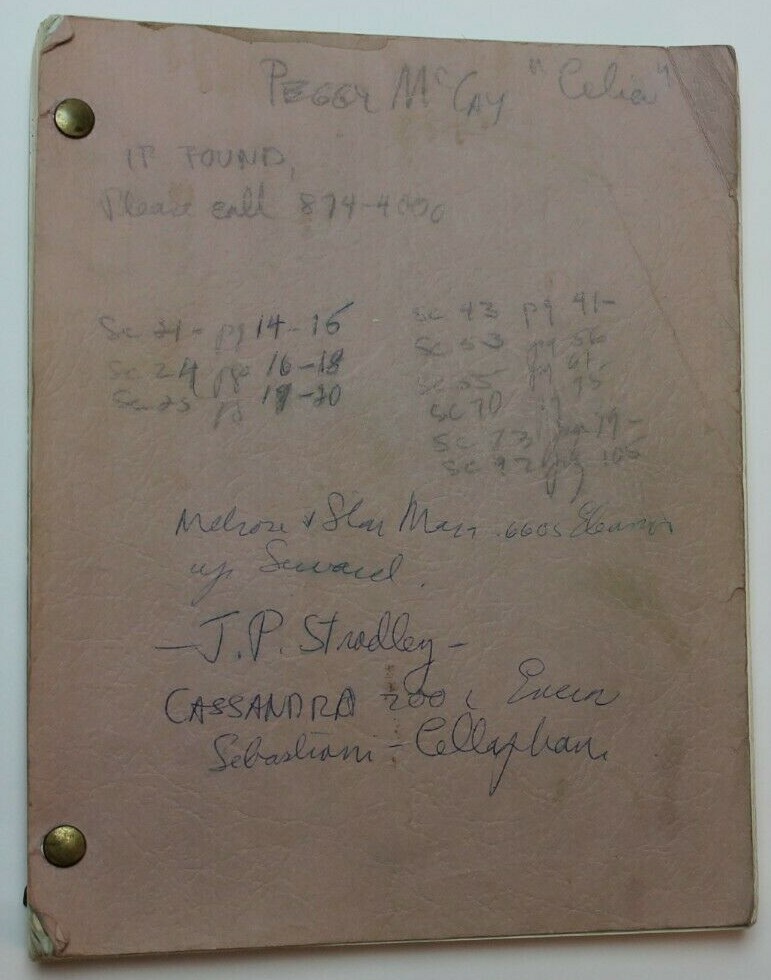 PEGGY McCAY "Celia"
IF FOUND,
Please call 874-4000
Sc 21- pg 14-16
Sc 24 pgs 16-18
Sc 25 pg 19-20
Sc 43 pg 41-
Sc 53 pg 56
Sc 55 pg 67-
Sc 70 pg 75
Sc 73
Sc 92 pg 106
Melrose & Star 6605
up Seward.
-J.P. Stradley-
CASSANDRA 200
Sebastian - Cellophane